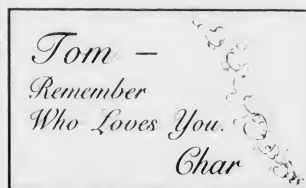 Tom –
Remember
Who Loves You.
Char